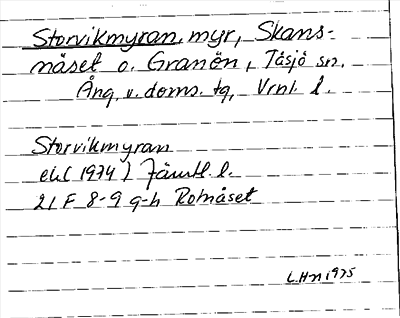 Storvikmyran, myr, Skans-
näset o. Granön, Tåsjö sn,
Ång. v. doms. tg, Vrnl. l.
Storvikmyran
ek (1974) Jämtl l.
21 F 8-9 g-h Rotnäset
L.Hn 1975